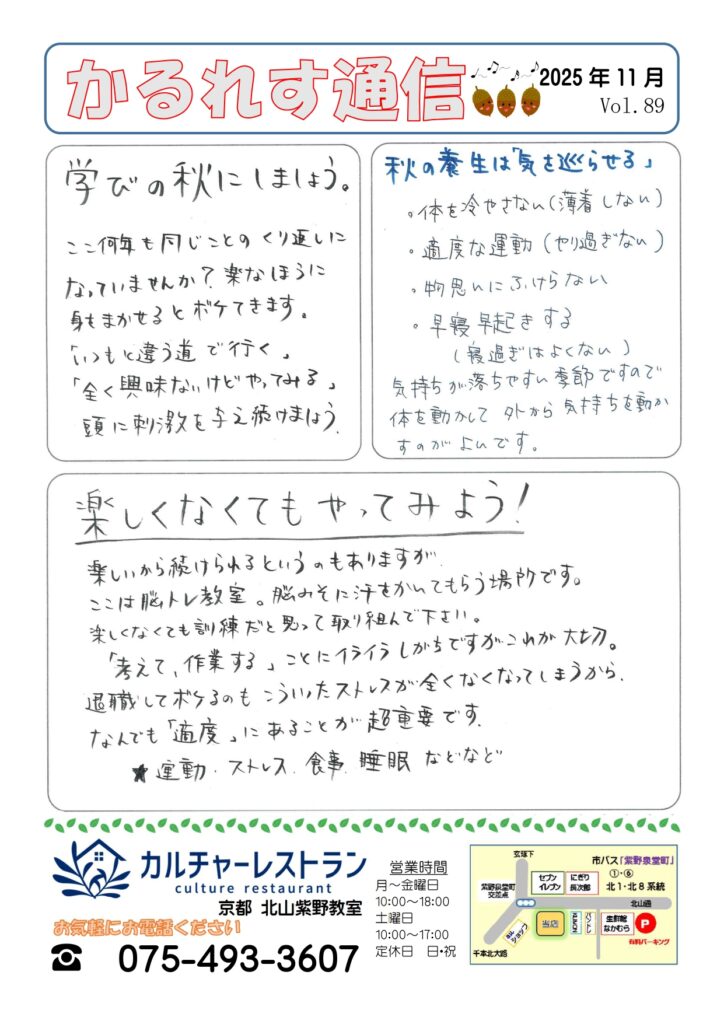 かるれす通信
2025年11月
Vol.89
学びの秋にしましょう。
ここ何年も同じことのくり返しに
なっていませんか？楽なほうに
身をまかせるとボケてきます。
「いつもと違う道で行く」
「全く興味ないけどやってみる」
頭に刺激を与え続けましょう。
秋の養生は「気を巡らせる」
。体を冷やさない（薄着しない）
。適度な運動（やり過ぎない）
。物思いにふけらない
。早寝早起きする
（寝過ぎはよくない）
気持ちが落ちやすい季節ですので
体を動かして外から気持ちを動か
すのがよいです。
楽しくなくてもやってみよう！
楽しいから続けられるというのもありますが
ここは脳トレ教室。脳みそに汗をかいてもらう場所です。
楽しくなくても訓練だと思って取り組んで下さい。
「考えて、作業する」ことにイライラしがちですがこれが大切。
退職してボケるのもこういったストレスが全くなくなってしまうから、
なんでも「適度」にあることが超重要です。
★運動、ストレス、食事、睡眠などなど
カルチャーレストラン
culture restaurant
京都 北山紫野教室
お気軽にお電話ください
☎ 075-493-3607
営業時間
月～金曜日
10:00～18:00
土曜日
10:00～17:00
定休日 日・祝
玄琢下
市バス「紫野泉堂町」
①・⑥
北1・北8系統
紫野泉堂町
交差点
セブン
イレブン
にぎり
長次郎
北山通
当店
生鮮館
なかむら
P
有料パーキング
千本北大路